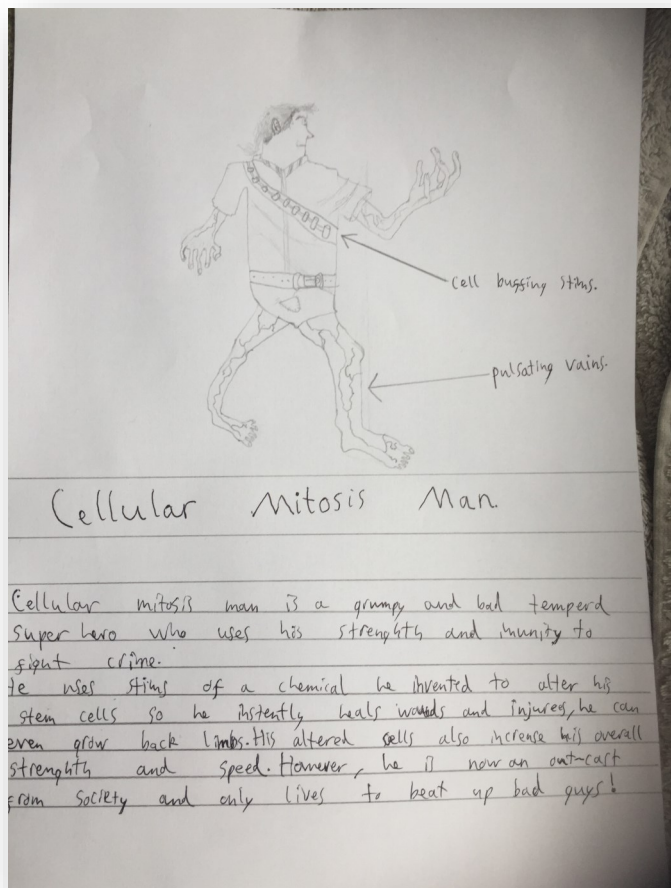 cell bugging stims.
pulsating vains.
Cellular Mitosis Man.
Cellular mitosis man is a grumpy and bad temperd
super hero who uses his strenghth and imunity to
fight crime.
He uses stims of a chemical he invented to alter his
stem cells so he instently heals wounds and injures, he can
even grow back limbs. His altered cells also increase his overall
strenghth and speed. However, he is now an out-cast
from society and only lives to beat up bad guys!